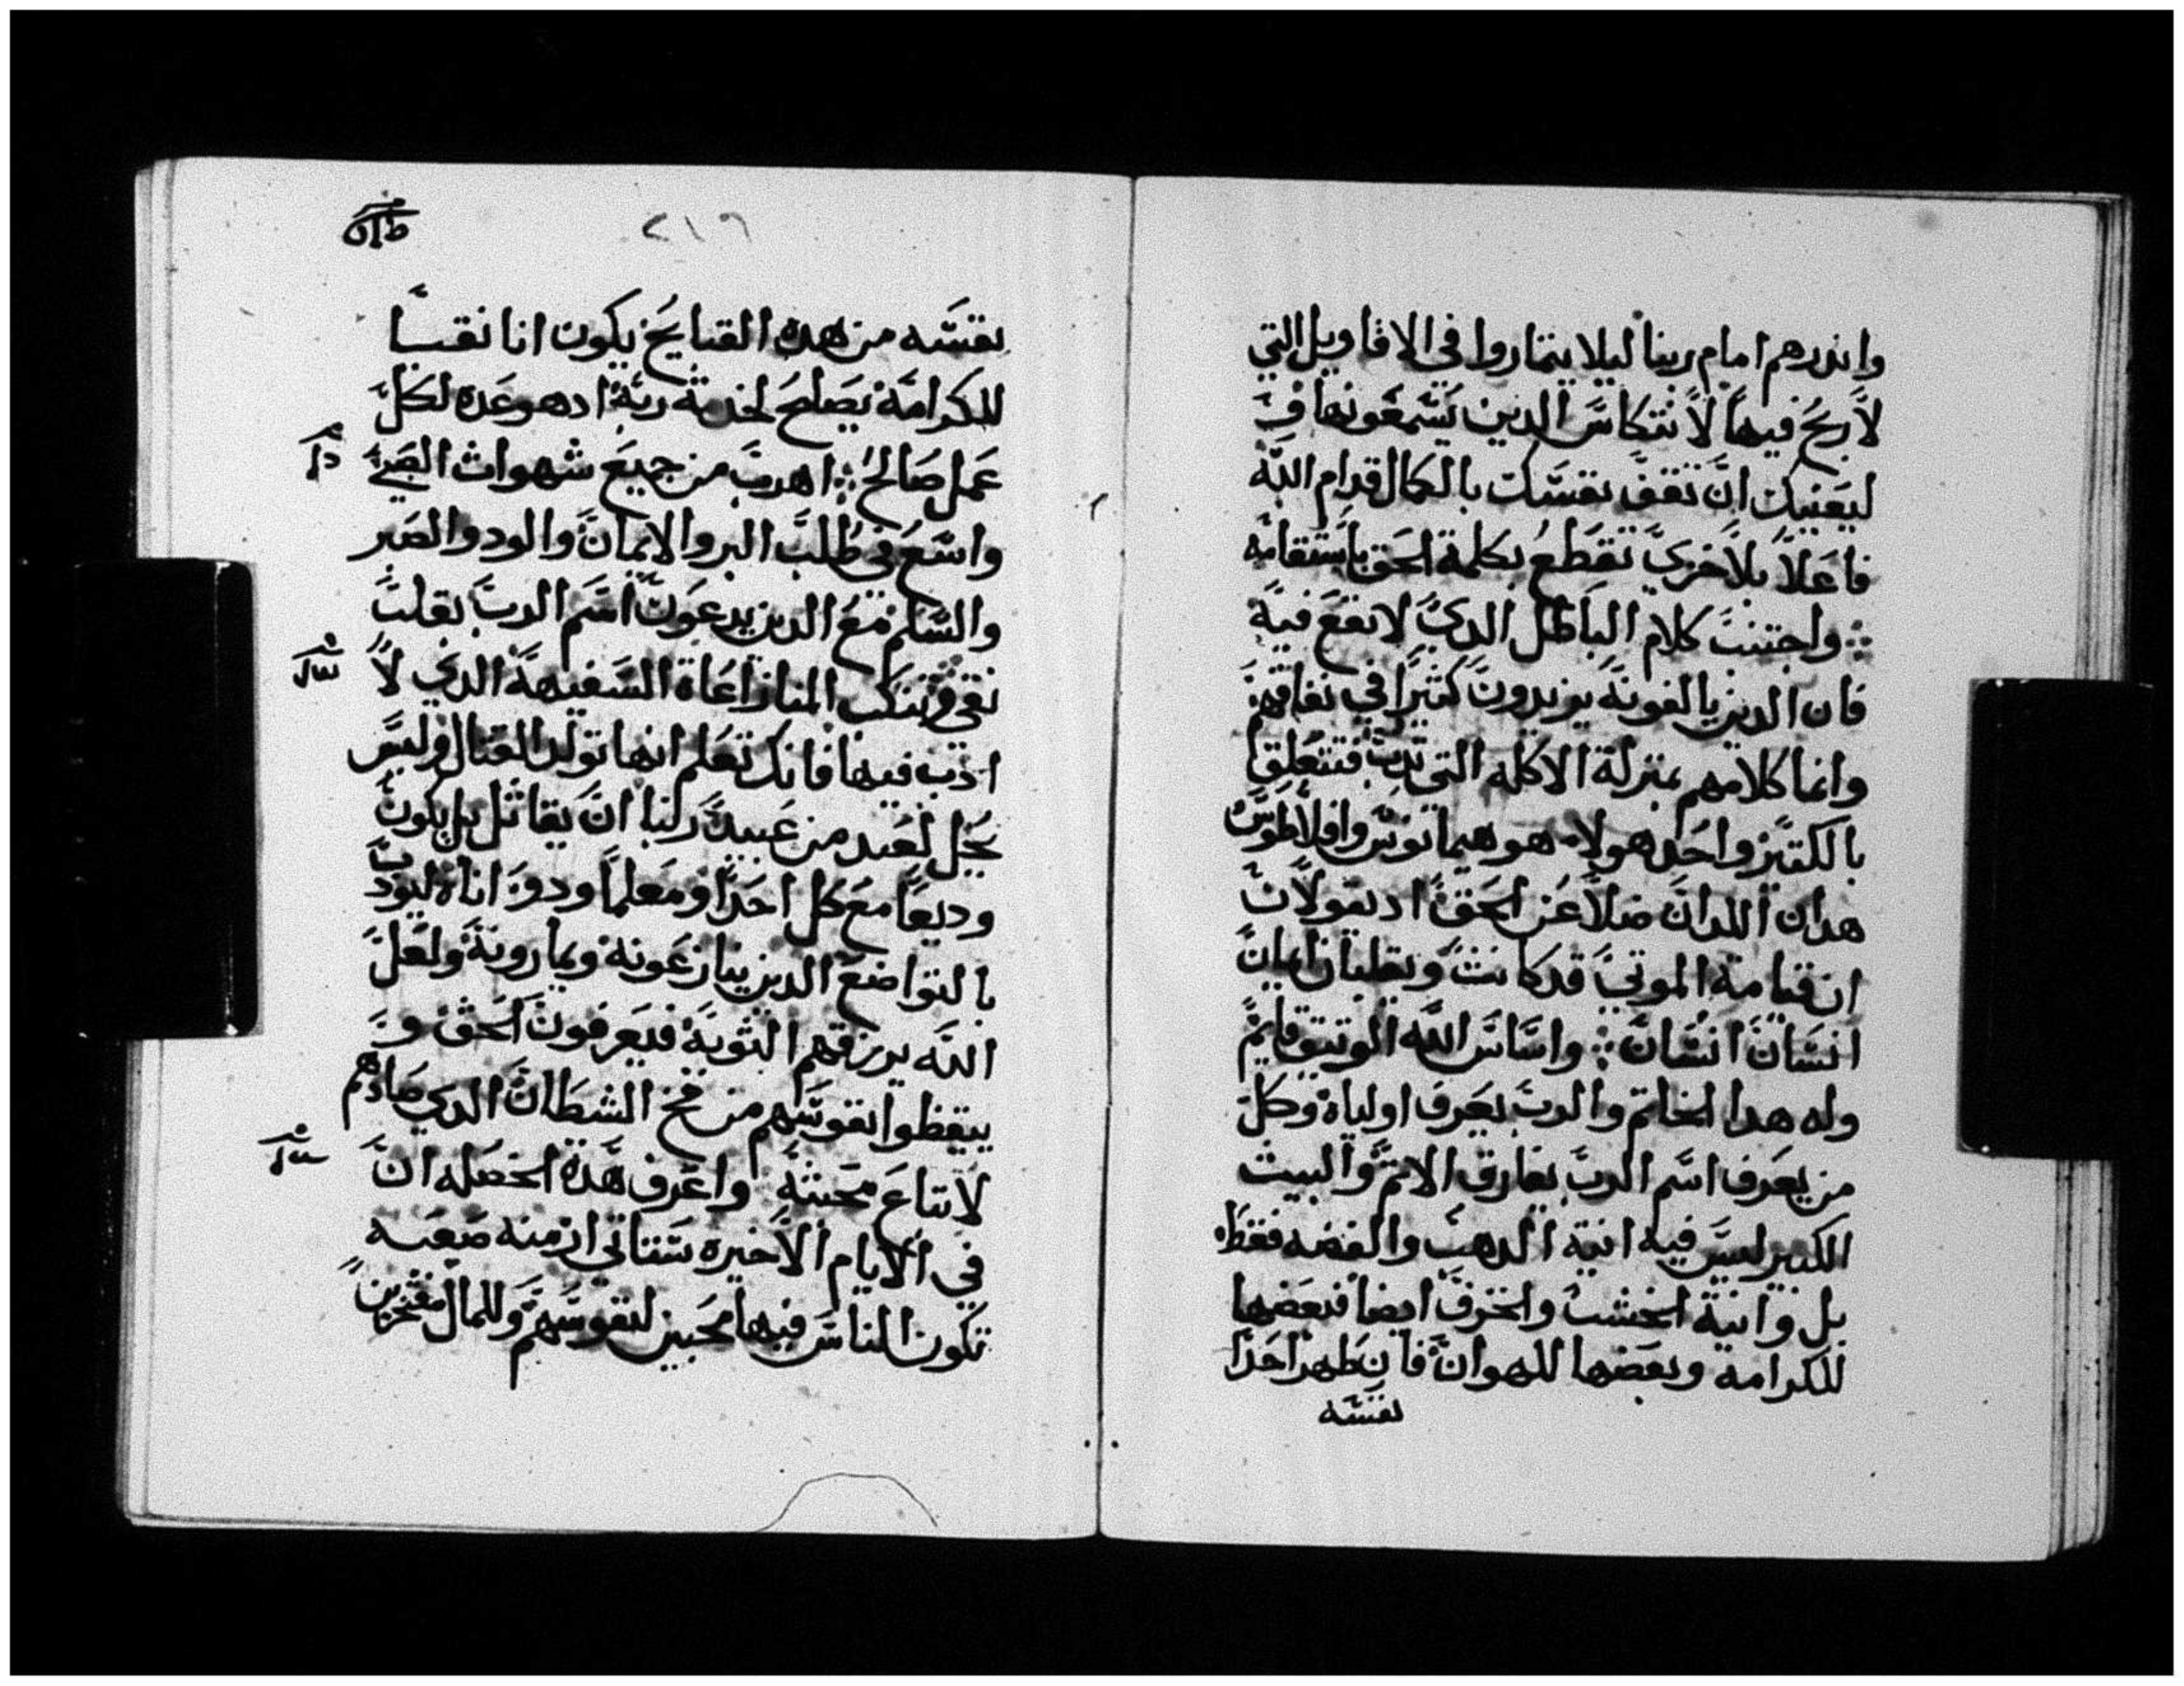 وانذرهم امام ربنا ليلا يتماروا في الاقاويل التي
لا ربح فيها لا نتكاس الدين يسمعونها و
ليعنيك ان تقف نفسك بالكمال قدام الله
فاعلا بلا خزي تقطع بكلمة الحق باستقامه
واجتنب كلام الباطل الدي لا نفع فيه
فان الدين يالفونه يزيدون كثيرا في نفاقهم
وانما كلامهم بمنزلة الاكله التي تدب فتتعلق
بالكتير واحد هولا هو هيمانوس وافلاطوس
هدان اللدان ضلا عن الحق اد يقولان
ان قيامة الموتي قد كانت ويقلبان ايمان
انسان انسان واساس الله الوتيق قايم
وله هدا الخاتم والرب يعرف اولياه وكل
من يعرف اسم الرب يفارق الاتم والبيت
الكبير ليس فيه انية الدهب والفضه فقط
بل وانية الخشب والخزف ايضا فبعضها
للكرامة وبعضها للهوان فان طهر احدا
نفسه
٢١٦
نفسه من هده القبايح يكون انا نقيا
للكرامة يصلح لخدمة ربه اد هو عده لكل
عمل صالح اهرب من جميع شهوات الصبي
واسع في طلب البر والايمان والود والصبر
والسلم مع الدين يدعون اسم الرب بقلب
نقي وتنكب المنازاعاة السفيهة الدي لا
ادب فيها فانك تعلم انها تولد القتال وليس
يحل لعبد من عبيد ربنا ان يقاتل بل يكون
وديعا مع كل احد ومعلما ودو اناه ليودب
بالتواضع الدين ينازعونه ويمارونه ولعل
الله يرزقهم التوبة فيعرفون الحق و
يتيقظوا نفوسهم من فخ الشطان الدي صادهم
لاتباع محبته واعرف هده الخصله ان
في الايام الاخيره ستاتي ازمنه صعبه
تكون الناس فيها محبين لنفوسهم وللمال مفتخرين